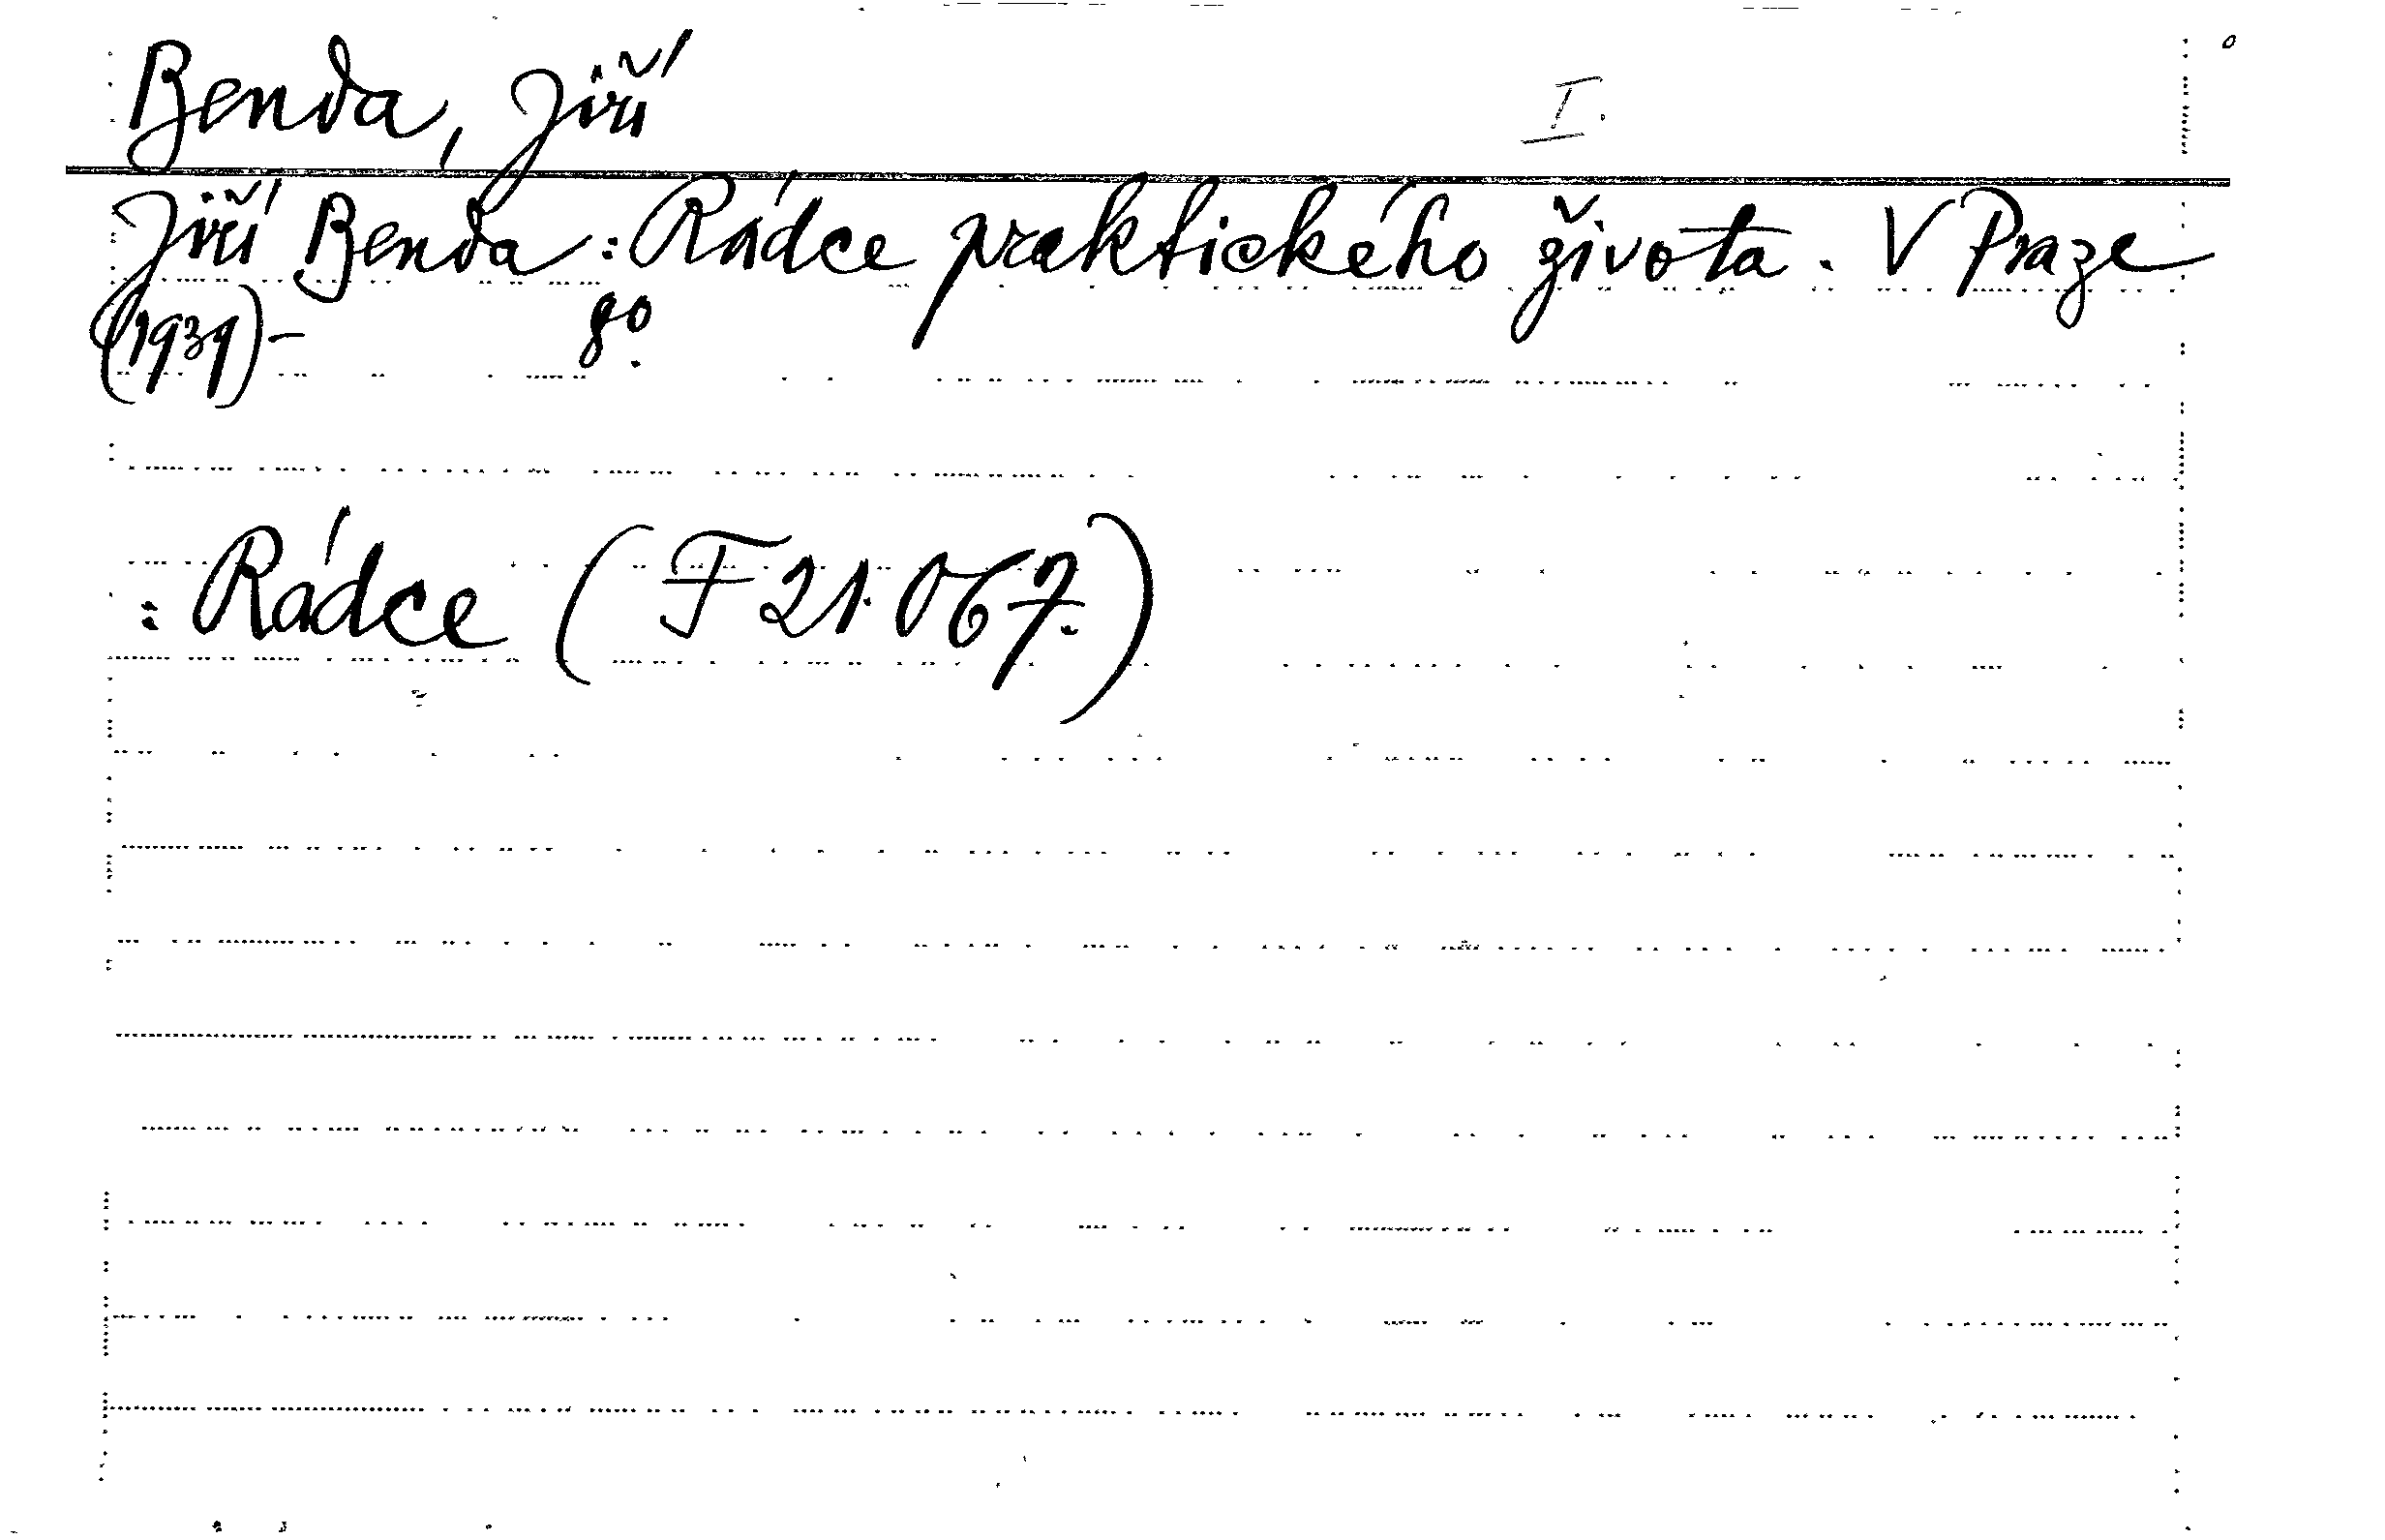 Benda, Jiří I.
Jiří Benda: Rádce praktického života. V Praze
(1939)- 8°.
: Rádce (F 21.067.)